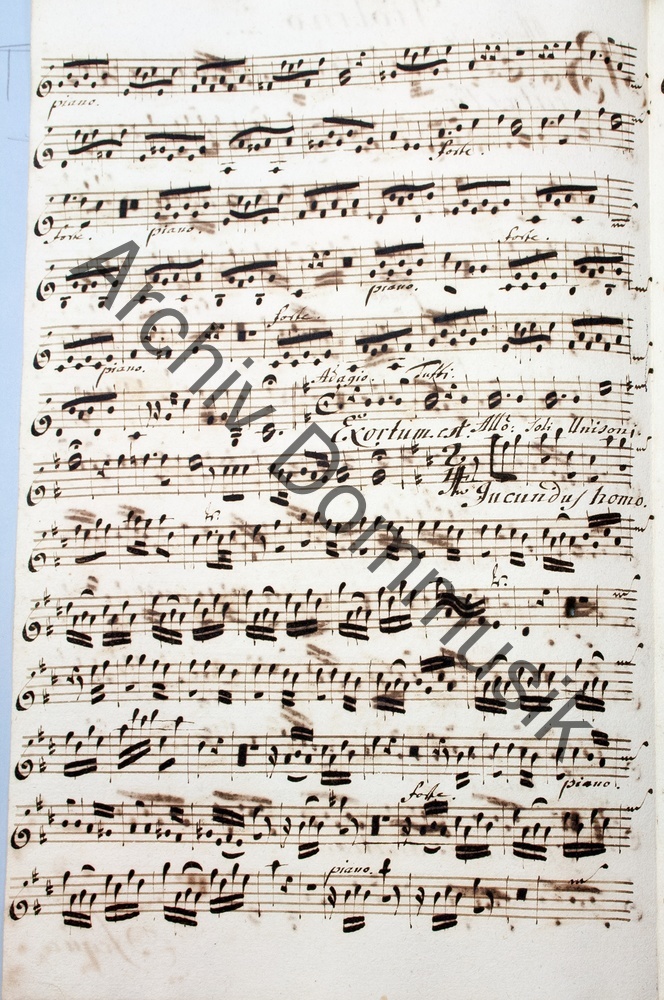 piano.
forte.
forte. piano.
piano. forte.
piano. forte.
Adagio. Tutti.
Exortum est. Allo: Soli Unisoni.
Jucundus homo.
tr.
tr.
piano.
forte.
piano.
Archiv Dommusik